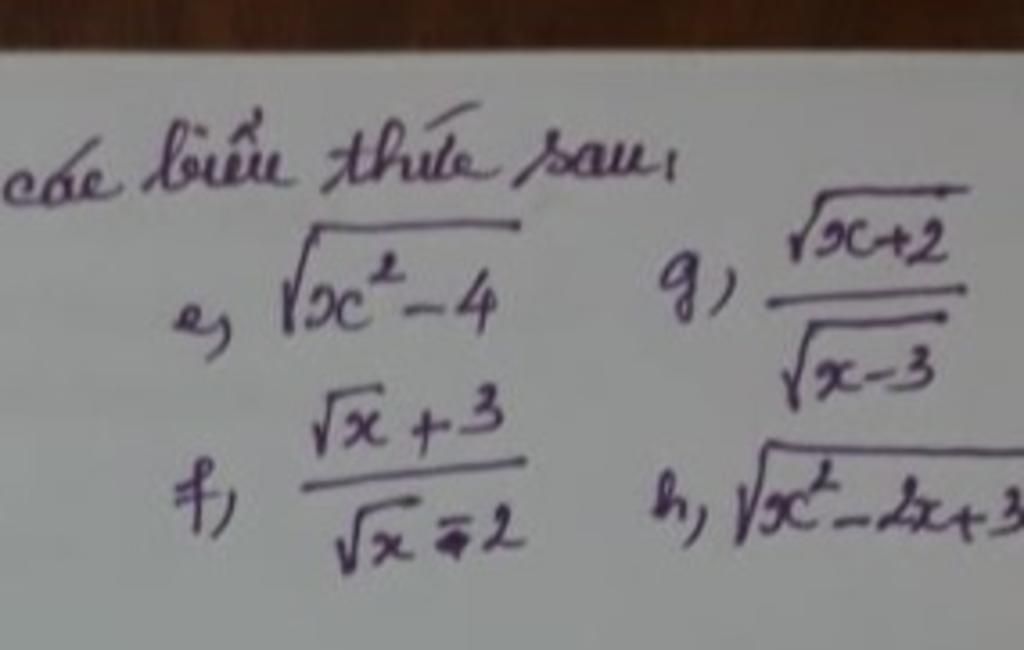 các biểu thức sau,
e, √(x² - 4) g, √(x+2) / √(x-3)
f, (√x + 3) / (√x - 2) h, √(x² - 2x + 3)